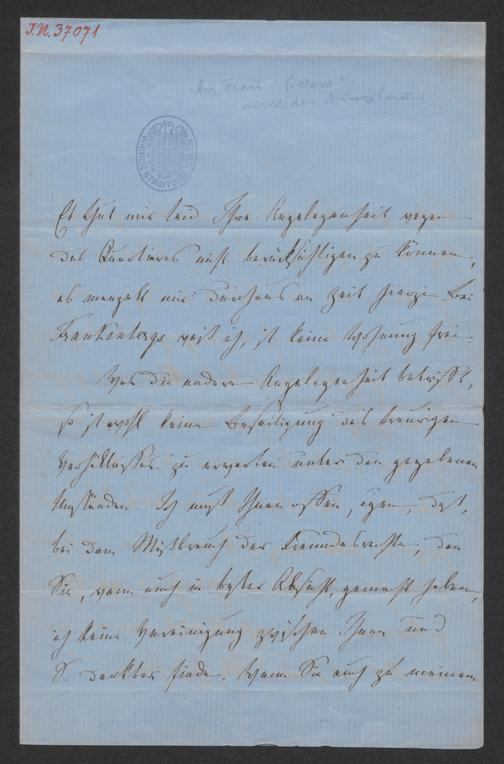 I.N. 37071
An Frau
nach der
STADTBIBL
Es thut mir leid Ihre Angelegenheit wegen
des Quartieres nicht berücksichtigen zu können,
es mangelt mir durchaus an Zeit hiezu. Bei
Frankenbergs weiß ich, ist keine Wohnung frei.
Was die andere Angelegenheit betrifft,
so ist wohl keine Beseitigung des traurigen
Verhältnisses zu erwarten unter den gegebenen
Umständen. Ich muß Ihnen offen sagen, daß,
bei dem Mißbrauch der Freundesrechte, den
Sie, wenn auch in bester Absicht, gemacht haben,
ich keine Vereinigung zwischen Ihnen und
S. denkbar finde. Wenn Sie auch zu meinem